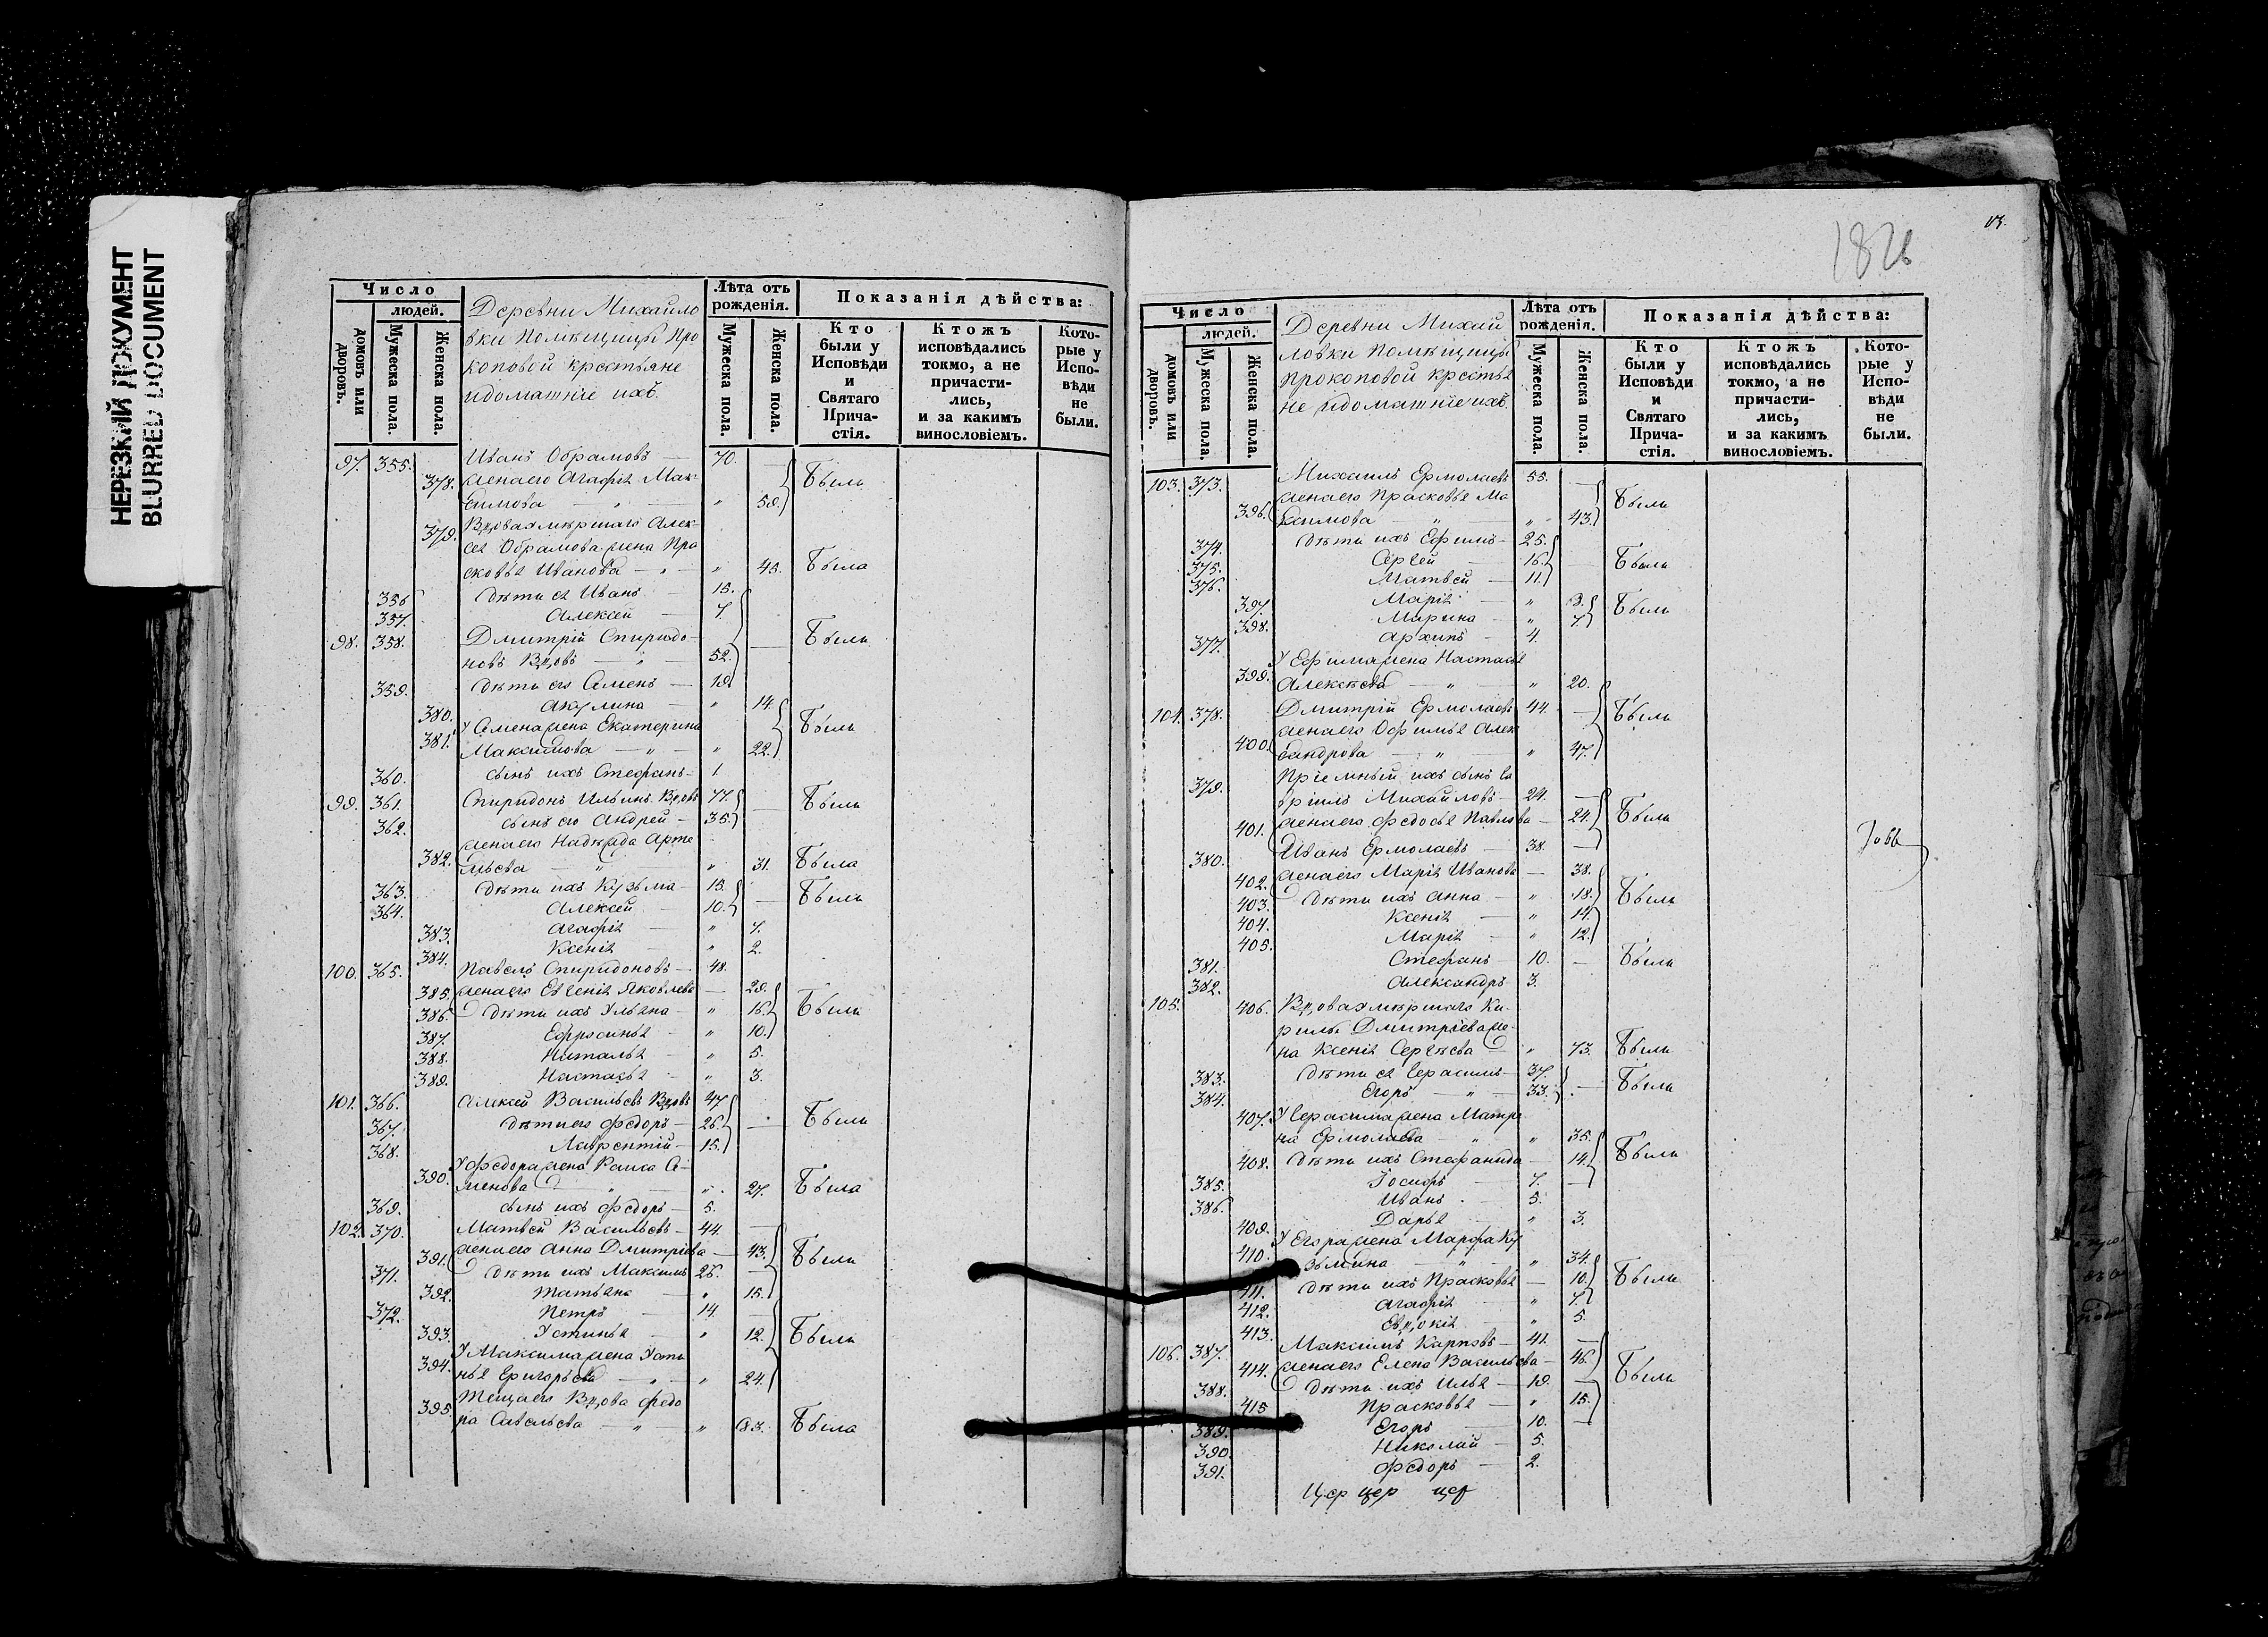 НЕРЕЗКИЙ ДОКУМЕНТ
BLURRED DOCUMENT
Число
людей.
домовъ или дворовъ.
Мужеска пола.
Женска пола.
Деревни Михайло
вки Помѣщицы Про
коповой крестьяне
идоматніе ихъ.
Лѣта отъ рожденія.
Мужеска пола.
Женска пола.
Показанія дѣйства:
Кто были у Исповѣди и Святаго Прича-стія.
Ктожъ исповѣдались токмо, а не причасти-лись, и за какимъ винословіемъ.
Кото-рые у Испо-вѣди не были.
97. 355. Иванъ Обрамовъ — 70. —
378. жена его Агафія Мак- Были
симова — " — " 58.
379. Вдова умершаго Алек-
сея Обрамова жена Пра
сковья Иванова — " — " 45. Была
356 Дѣти ея Иванъ — 15.
357. Алексей — 7.
98. 358. Дмитрій Спиридо- Были
новъ Вдовъ — " — 52.
359. Дѣти его Семенъ — 19.
380. Акулина — " 14.
381. У Семена жена Екатерина Были
Максимова — " — " 22.
360. Сынъ ихъ Стефанъ — 1
99. 361. Спиридонъ Ильинъ Вдовъ 77. — Были
362. Сынъ его Андрей — 35.
382. жена его Надежда Арте
мьева — " — " 31. Была
363. Дѣти ихъ Кузьма — 15. Были
364. Алексей — 10.
383. Агафія — " 7.
384. Ксенія — " 2.
100. 365. Павелъ Спиридоновъ — 48.
385. жена его Евгенія Яковлева — 29.
386. Дѣти ихъ Ульяна — " 16. Были
387. Ефросинья — " 10.
388. Наталья — " 5.
389. Настасья — " 3.
101. 366. Алексей Васильевъ Вдовъ 47
367. Дѣти его Федоръ — 26. — Были
368. Лаврентій — 15.
390. У Федора жена Раиса Се-
менова — " — " 27. Была
369. Сынъ ихъ Федоръ — 5.
102. 370. Матвей Васильевъ — 44. —
391. жена его Анна Дмитріева — 43. Были
371. Дѣти ихъ Максимъ 26. —
392. Татьяна — " 15.
372. Петръ — 14. —
393. Устинья — " 12. Были
394. У Максима жена Усти
нья Григорьева — " — " 24.
395. Теща его Вдова Федо
ра Савельева — " — " 83. Была
182
Число
людей.
домовъ или дворовъ.
Мужеска пола.
Женска пола.
Деревни Михай
ловки Помѣщицы
Прокоповой крестья
не идоматніе ихъ.
Лѣта отъ рожденія.
Мужеска пола.
Женска пола.
Показанія дѣйства:
Кто были у Исповѣди и Святаго Прича-стія.
Ктожъ исповѣдались токмо, а не причасти-лись, и за какимъ винословіемъ.
Кото-рые у Испо-вѣди не были.
103. 373. Михаилъ Ермолаевъ 55. —
396. жена его Прасковья Ма Были
ксимова " — " 43.
374. Дѣти ихъ Ефимъ — 25.
375. Сергей — 16. — Были
376. Матвей — 11.
397. Марія — " 8. Были
398. Марина — " 7.
377. Архипъ — 4.
399. У Ефима жена Настасья
Алексеева — " — " 20.
104. 378. Дмитрій Ермолаевъ 44. — Были
400. жена его Офимья Алек
сандрова — " " 47.
379. Пріемный ихъ сынъ Га
врилъ Михайловъ — 24. —
401. жена его Федосья Павлова — 24. Были
380. Иванъ Ермолаевъ — 38. —
402. жена его Марія Иванова — 38.
403. Дѣти ихъ Анна — " 18. Были
404. Ксенія — " 14.
405. Марія — " 12.
381. Стефанъ — 10. — Были
382. Александръ 3.
105. 406. Вдова умершаго Ки-
рилы Дмитріева же-
на Ксенія Сергѣева — " 73. Были
383. Дѣти ея Герасимъ — 37.
384. Егоръ — " — 33. — Были
407. У Герасима жена Матре
на Ермолаева — " — " 35.
408. Дѣти ихъ Стефанида — 14. Были
385. Іосифъ — 7. —
386. Иванъ — 5.
409. Дарья — " 3.
410. У Егора жена Марфа Ку
зьмина — " — " 34.
411. Дѣти ихъ Прасковья — 10. Были
412. Агафія — " 7.
413. Евдокія — " 5.
106. 387. Максимъ Карповъ — 41. —
414. жена его Елена Васильева — 46. Были
388. Дѣти ихъ Илья — 19. —
415 Прасковья — " 15.
389. Егоръ — 10. —
390. Николай — 5.
391. Федоръ — 2.
Цер цер цер